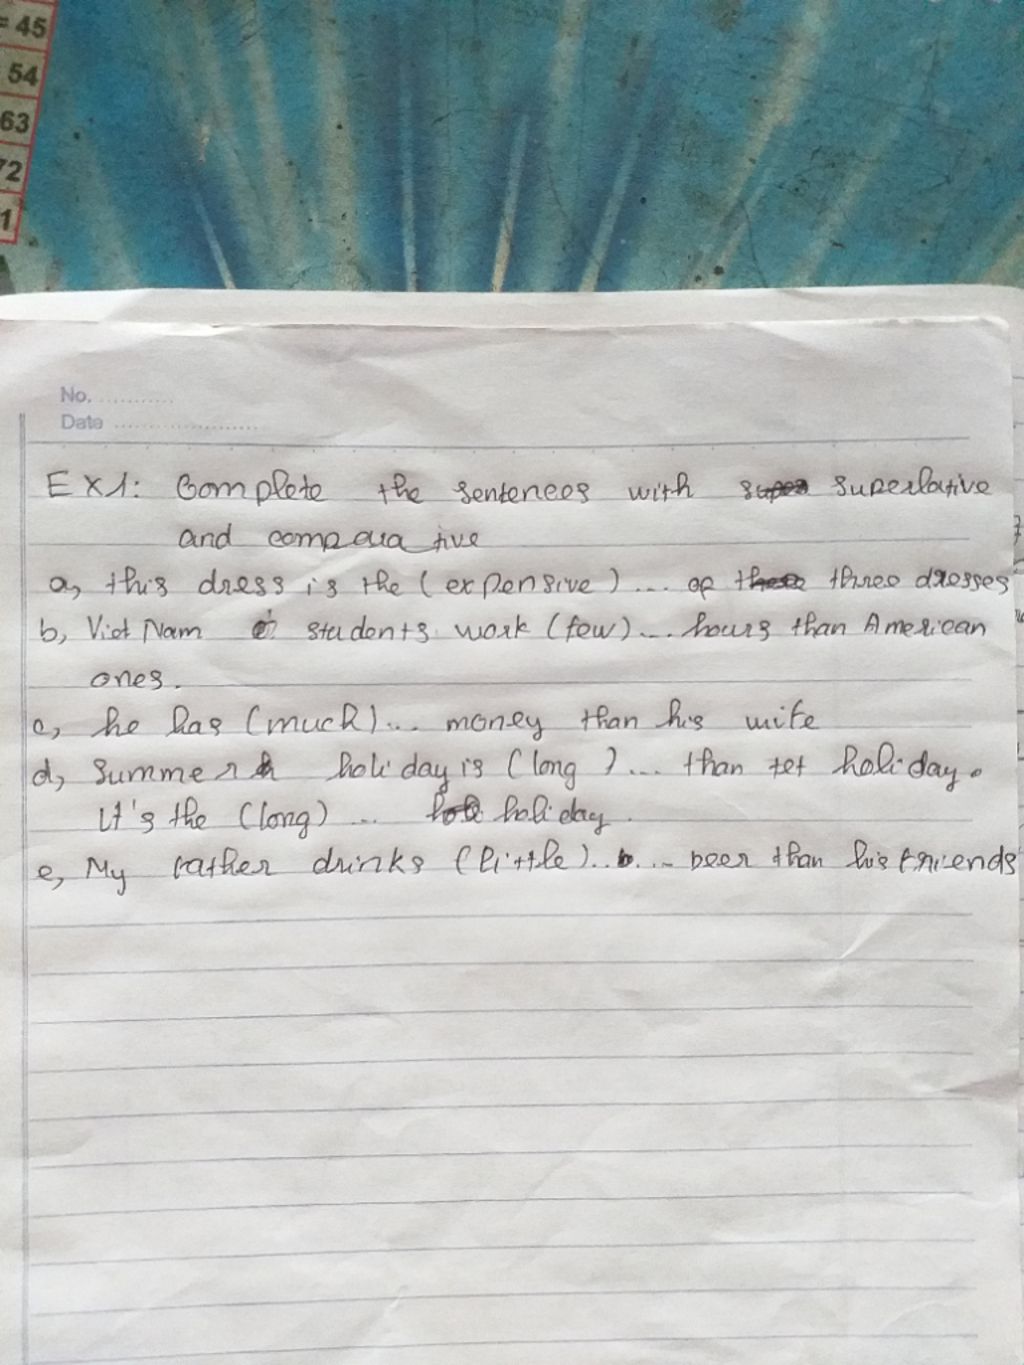 = 45
54
63
72
1
No. ...........
Date ......................
EX1: Complete the sentences with superlative
and comparative
a, this dress is the (expensive) ... of three dresses
b, Viet Nam students work (few) ... hours than American
ones.
c, he has (much) ... money than his wife
d, Summer holiday is (long) ... than tet holiday.
It's the (long) ... holiday.
e, My father drinks (little) ... beer than his friends